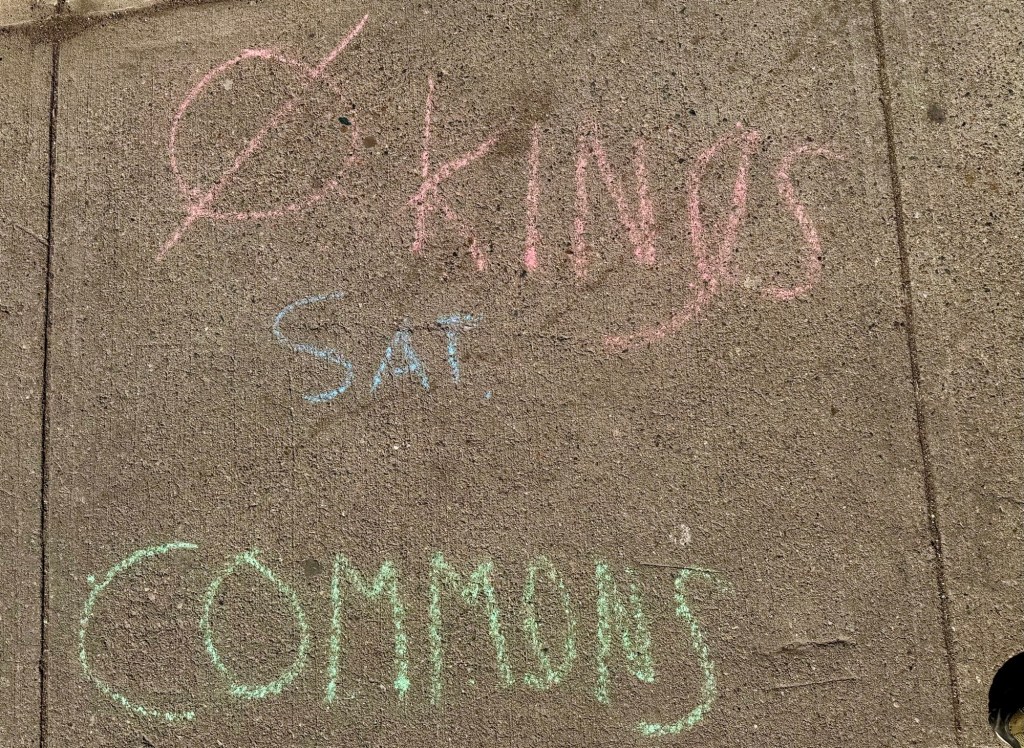 Ø KINgS
SAT.
COMMONS